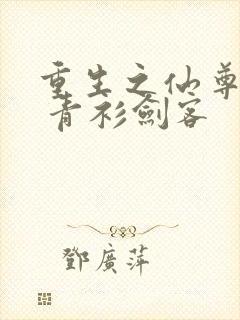 重生之仙尊
青衫劍客
鄧廣萍